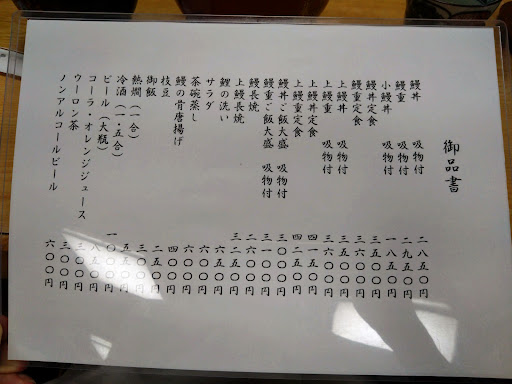 御品書
鰻丼 吸物付 二八五〇円
鰻重 吸物付 二九五〇円
小鰻丼 吸物付 一八五〇円
鰻丼定食 三五〇〇円
鰻重定食 三六〇〇円
上鰻丼 吸物付 三五〇〇円
上鰻重 吸物付 三六〇〇円
上鰻丼定食 四一五〇円
上鰻重定食 四二五〇円
鰻丼ご飯大盛 吸物付 三〇〇〇円
鰻重ご飯大盛 吸物付 三一〇〇円
鰻長焼 二六〇〇円
上鰻長焼 三二五〇円
鯉の洗い 六五〇円
サラダ 六〇〇円
茶碗蒸し 六〇〇円
鰻の骨唐揚げ 四〇〇円
枝豆 二五〇円
御飯 三〇〇円
熱燗(一合) 五五〇円
冷酒(一・五合) 一〇〇〇円
ビール(大瓶) 八五〇円
コーラ・オレンジジュース 三〇〇円
ウーロン茶 三〇〇円
ノンアルコールビール 六〇〇円